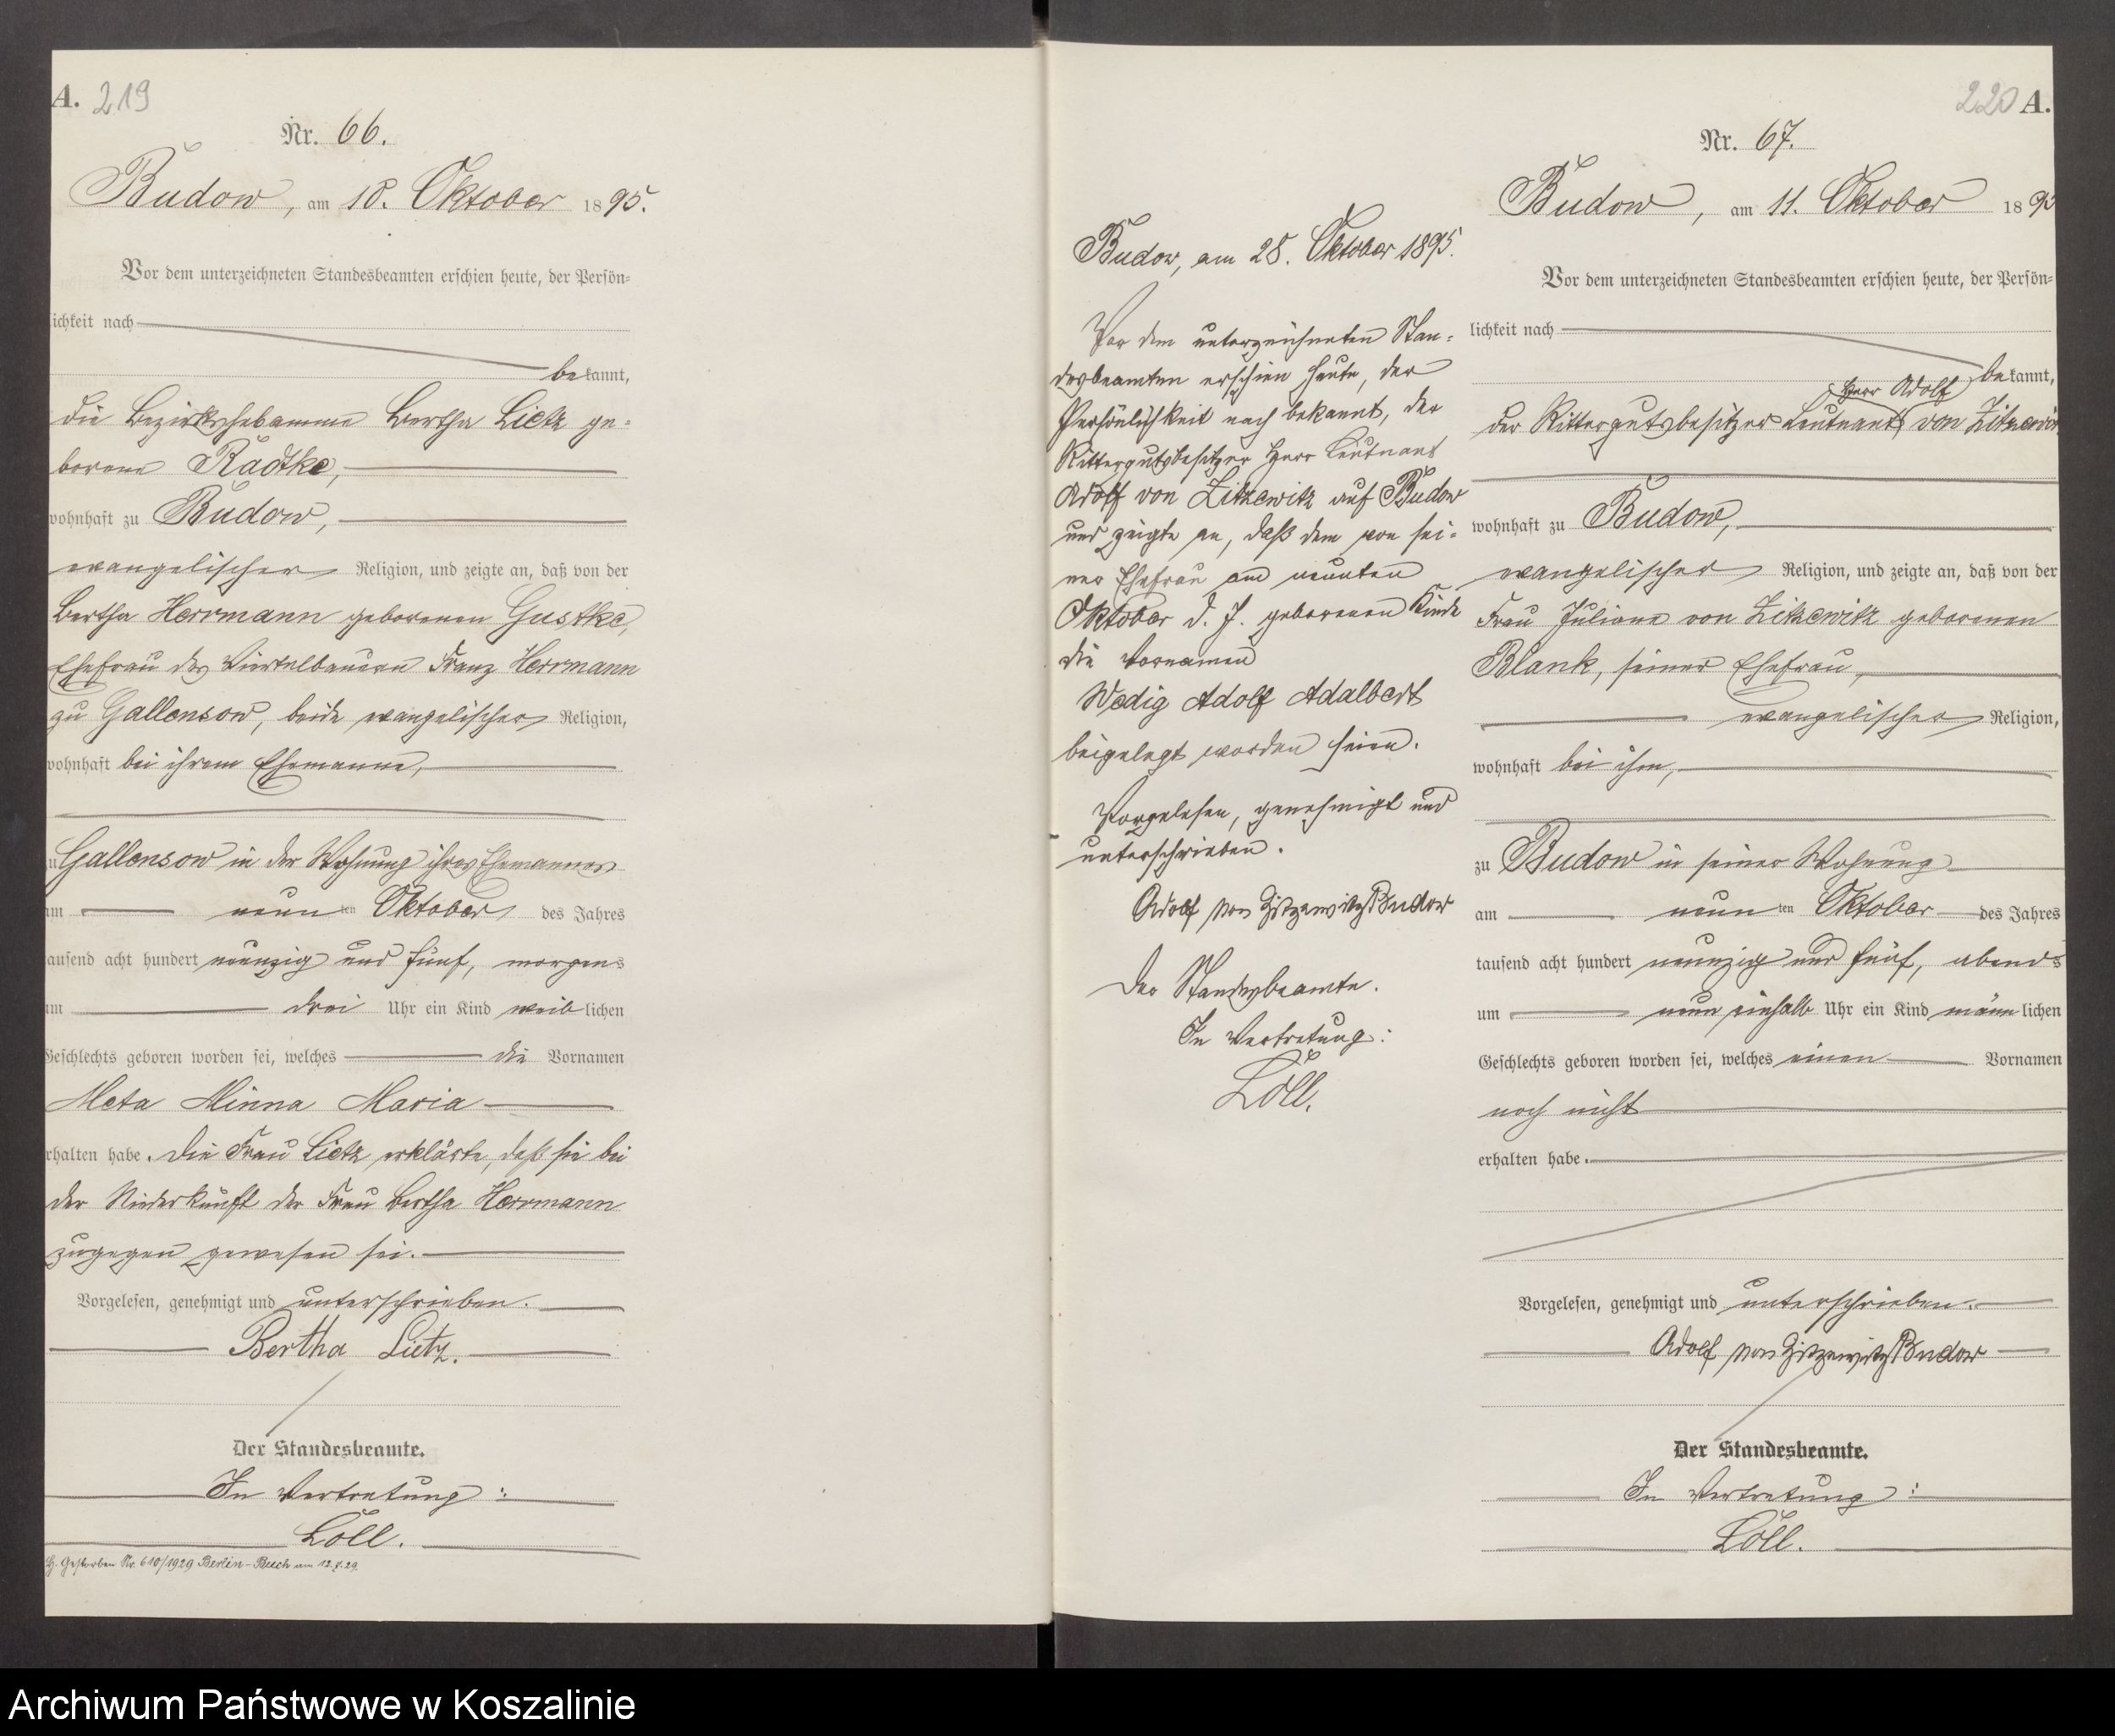 A. 219
Nr. 66.
Budow, am 10. Oktober 1895.
Vor dem unterzeichneten Standesbeamten erschien heute, der Persön=
lichkeit nach
bekannt,
die Bezirkshebamme Bertha Lietz ge=
borene Radtke,
wohnhaft zu Budow,
evangelischer Religion, und zeigte an, daß von der
Bertha Herrmann geborenen Gustke,
Ehefrau des Viertelbauern Franz Herrmann
zu Gallensow, beide evangelischer Religion,
wohnhaft bei ihrem Ehemanne,
zu Gallensow in der Wohnung ihres Ehemannes
am neunten Oktober des Jahres
tausend acht hundert neunzig und fünf, morgens
um drei Uhr ein Kind weiblichen
Geschlechts geboren worden sei, welches die Vornamen
Meta Minna Maria
erhalten habe. Die Frau Lietz erklärte, daß sie bei
der Niederkunft der Frau Bertha Herrmann
zugegen gewesen sei.
Vorgelesen, genehmigt und unterschrieben.
Bertha Lietz.
Der Standesbeamte.
In Vertretung:
Löll.
Gestorben Nr. 610/1929 Berlin-Buch am 12.5.29.
220 A.
Nr. 67.
Budow, am 11. Oktober 1895
Vor dem unterzeichneten Standesbeamten erschien heute, der Persön=
lichkeit nach
bekannt,
Herr Adolf
der Rittergutsbesitzer Leutnant von Zitzewitz
wohnhaft zu Budow,
evangelischer Religion, und zeigte an, daß von der
Frau Juliane von Zitzewitz geborenen
Blank, seiner Ehefrau,
evangelischer Religion,
wohnhaft bei ihm,
zu Budow in seiner Wohnung
am neunten Oktober des Jahres
tausend acht hundert neunzig und fünf, abends
um neun einhalb Uhr ein Kind männlichen
Geschlechts geboren worden sei, welches einen Vornamen
noch nicht
erhalten habe.
Vorgelesen, genehmigt und unterschrieben.
Adolf von Zitzewitz Budow
Der Standesbeamte.
In Vertretung:
Löll.
Budow, am 28. Oktober 1895.
Vor dem unterzeichneten Stan=
desbeamten erschien heute, der
Persönlichkeit nach bekannt, der
Rittergutsbesitzer Herr Leutnant
Adolf von Zitzewitz auf Budow
und zeigte an, daß dem von sei=
ner Ehefrau am neunten
Oktober d. J. geborenen Kinde
die Vornamen
Wedig Adolf Adalbert
beigelegt worden seien.
Vorgelesen, genehmigt und
unterschrieben.
Adolf von Zitzewitz Budow
Der Standesbeamte.
In Vertretung:
Löll.
Archiwum Państwowe w Koszalinie